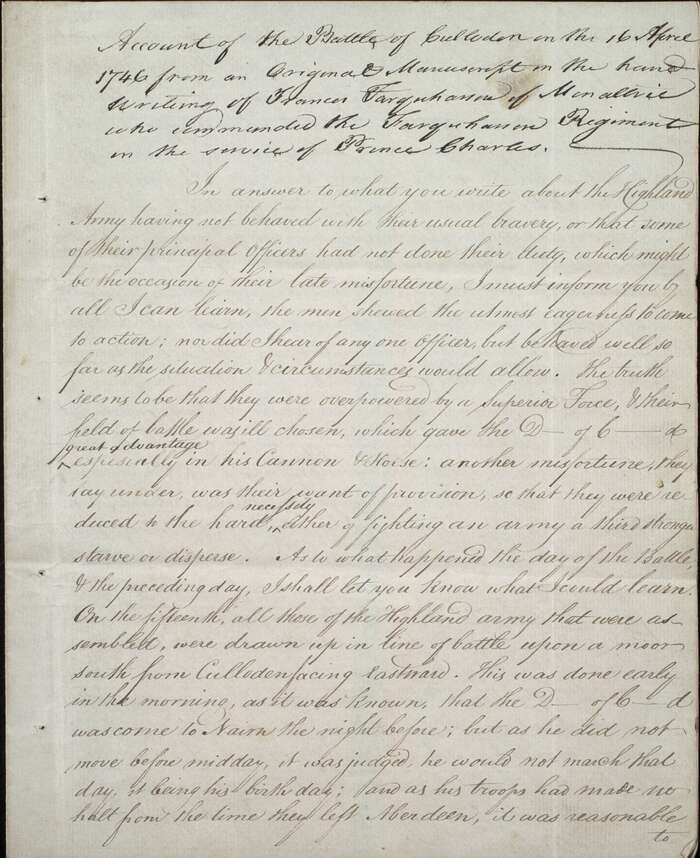 Account of the Battle of Culloden on the 16 April
1746 from an Original Manuscript in the hand
Writing of Francis Farquharson of Monaltrie
who commanded the Farquharson Regiment
in the service of Prince Charles.
In answer to what you write about the Highland
Army having not behaved with their usual bravery, or that some
of their principal Officers had not done their duty, which might
be the occasion of their late misfortune, I must inform you by
all I can learn, the men shewed the utmost eagerness to come
to action; nor did I hear of any one Officer, but behaved well so
far as the situation & circumstances would allow. The truth
seems to be that they were overpowered by a Superior Force, & their
field of battle was ill chosen, which gave the D— of C—d
great advantage
especially in his Cannon & Horse: another misfortune, they
lay under, was their want of provision, so that they were re
necessity
duced to the hard, either of fighting an army a third stronger
starve or disperse. As to what happened the day of the Battle,
& the preceding day, I shall let you know what I could learn.
On the fifteenth, all those of the Highland army that were as-
sembled, were drawn up in line of battle upon a moor
south from Culloden facing Eastward. This was done early
in the morning, as it was known, that the D— of C—d
was come to Nairn the night before; but as he did not
move before midday, it was judged, he would not march that
day, it being his birth day; and as his troops had made no
halt from the time they left Aberdeen, it was reasonable
to